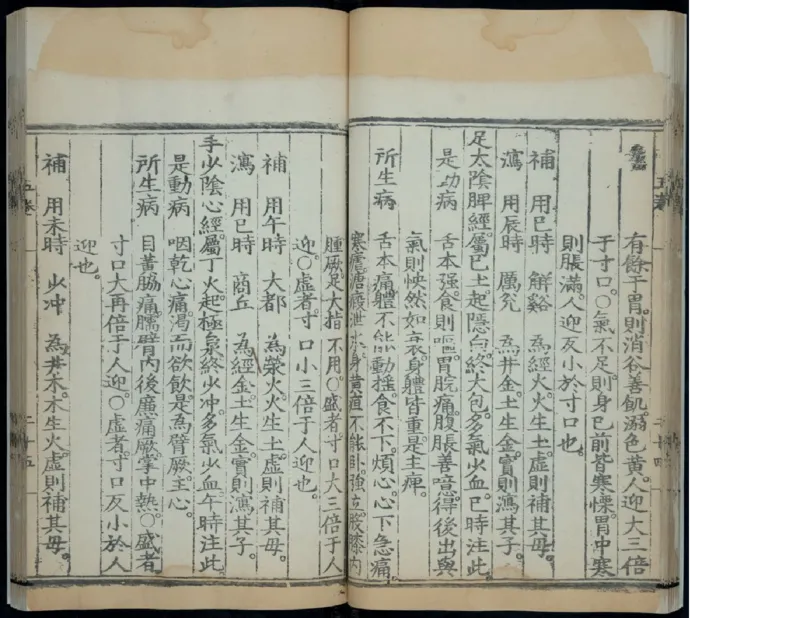 有餘于胃。則消谷善飢。溺色黃。人迎大三倍
于寸口。○氣不足則身已前皆寒慄。胃中寒
則脹滿。人迎反小於寸口也。
補 用巳時 解谿 為經火。火生土。虛則補其毋。
瀉 用辰時 厲兊 為井金。土生金。實則瀉其子。
足太陰脾經。屬巳土起隱白。終大包。多氣少血。巳時注此。
是動病 舌本强。食則嘔。胃脘痛。腹脹善噫。得後出與
氣則怏然如衰。身體皆重。是主痺。
所生病 舌本痛。體不能動揺。食不下。煩心。心下急痛。
寒瘧。溏瘕泄。水身黃疸。不能卧。強立。股膝內
腫厥。足大指不用。○盛者寸口大三倍于人
迎。○虛者寸口小三倍于人迎也。
補 用午時 大都 為滎火。火生土。虛則補其毋。
瀉 用巳時 商丘 為經金。土生金。實則瀉其子。
手少陰心經。屬丁火。起極泉。終少冲。多氣少血。午時注此。
是動病 咽乾心痛。渴而欲飲。是為臂厥。主心。
所生病 目黃脇痛。臑臂內後廉痛厥。掌中熱。○盛者
寸口大再倍于人迎。○虛者寸口反小於人
迎也。
補 用未時 少冲 為井木。木生火。虛則補其毋。
五卷
二十五